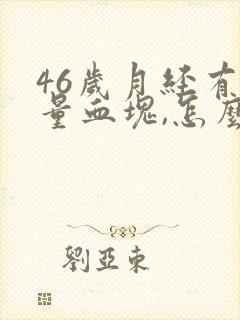 46歲月經有
量血塊,怎麼
劉亞東